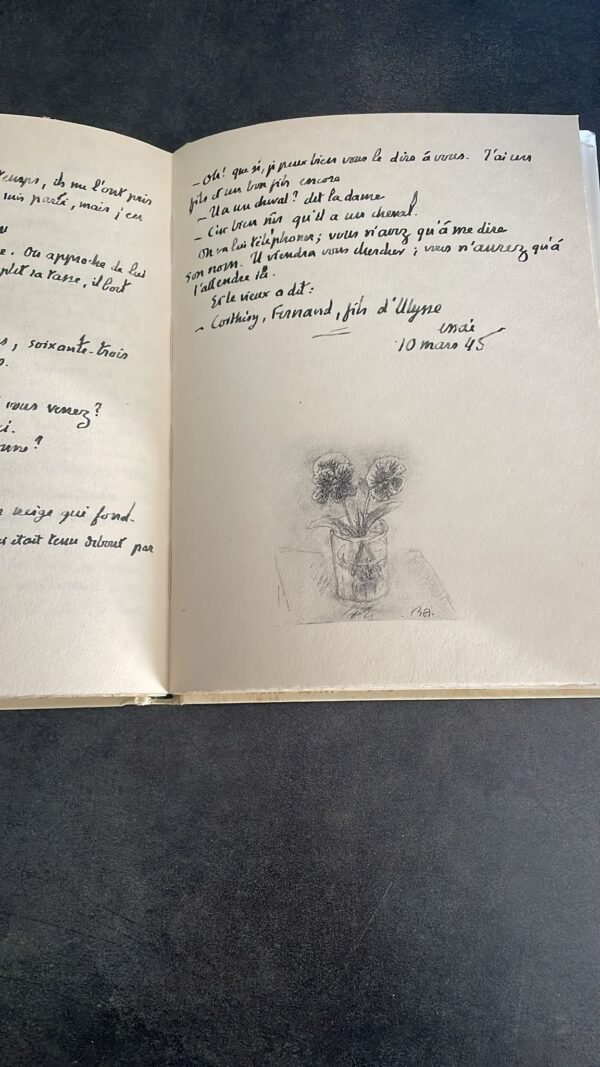 temps, ils me l'ont pris
suis parti, mais j'en
e. On approche de lui
plit sa tasse, il boit
s, soixante-trois
s.
vous venez?
ci.
neige qui fond.
i était tenu debout par
– Oh! que si, je peux bien vous le dire à vous. J'ai un
fils et un bon fils encore
– Il a un cheval? dit la dame
– bien sûr qu'il a un cheval.
On va lui téléphoner; vous n'avez qu'à me dire
son nom. Il viendra vous chercher; vous n'aurez qu'à
l'attendre ici.
Et le vieux a dit:
– Corthésy, Fernand, fils d'Ulysse
10 mars 45